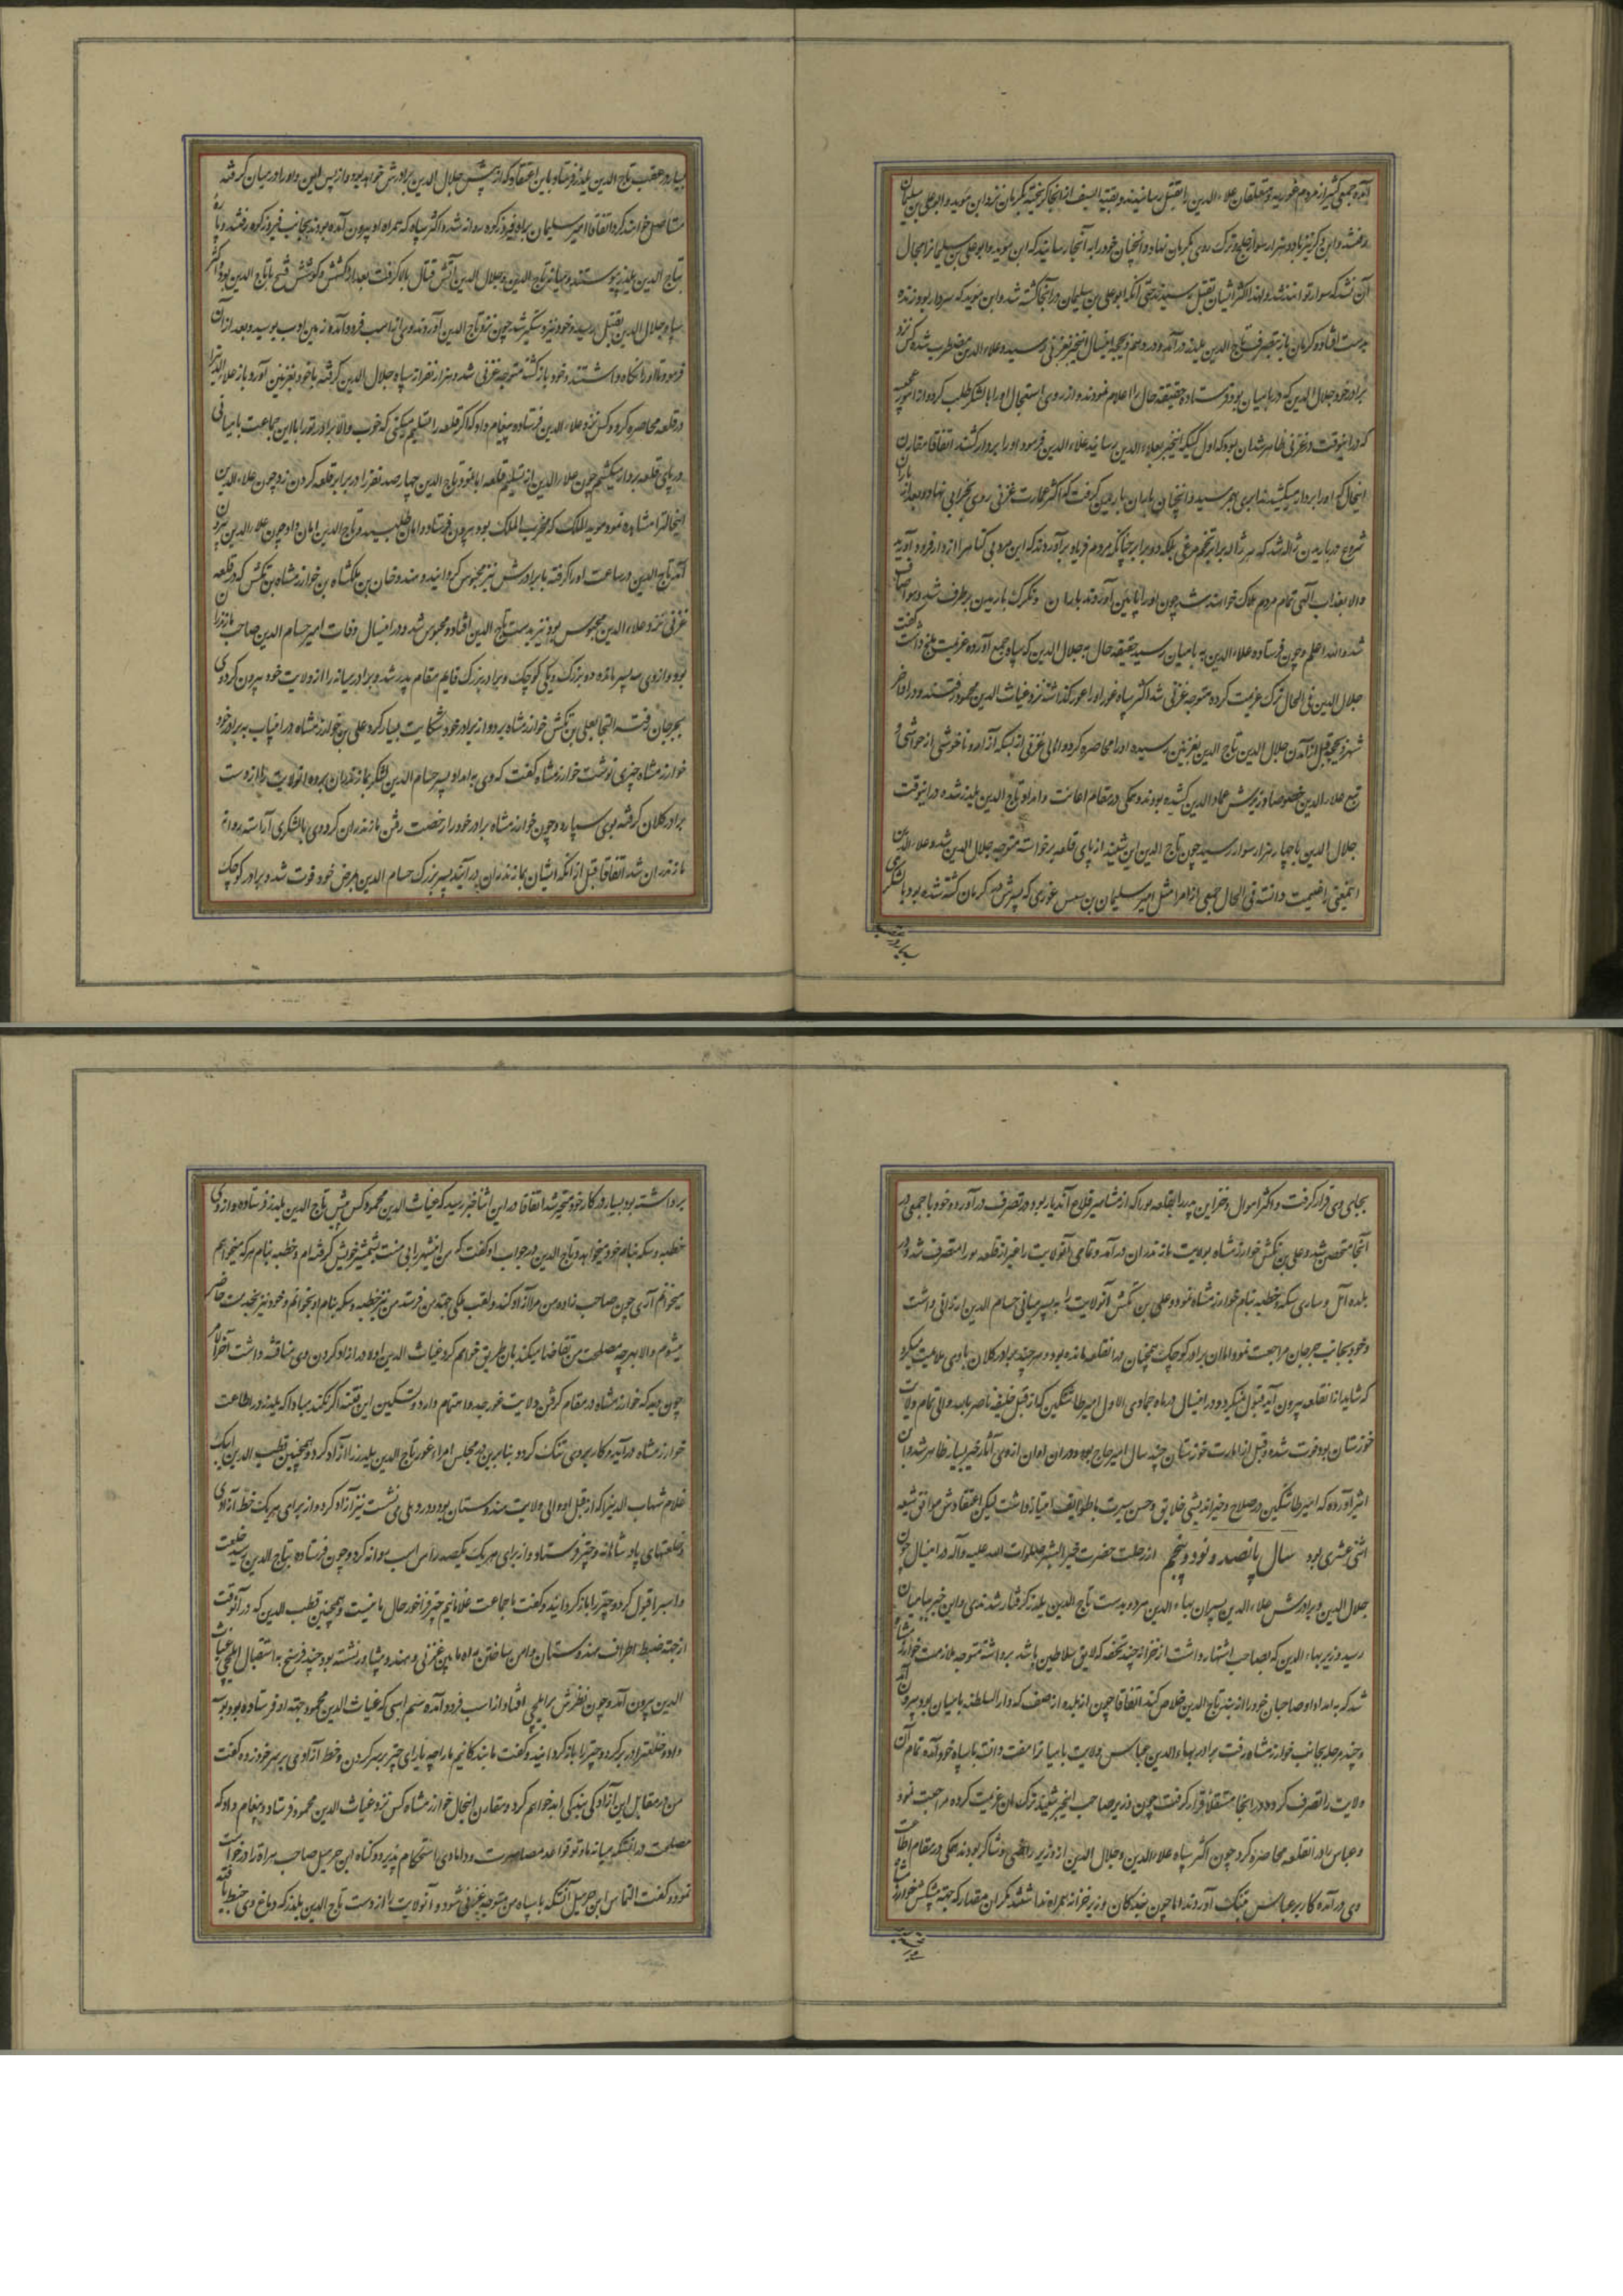 آمده جمعی کثیر از مردم غوریه و متعلقان علاء الدین را بقتل رسانیدند و بقیة السیف از آنجا گریخته بکرمان نزد ابن موید و ابو علی بن سلیمان
رفتند و ابی دکز نیز با دو هزار سوار خلج و ترک روی بکرمان نهاد و آنچنان خود را به آنجا رسانید که ابن موید و ابو علی بن سلیمان را مجال
آن نشد که سوار توانند شد و لهذا اکثر ایشان بقتل رسیدند حتی آنکه ابو علی بن سلیمان در آنجا کشته شد و ابن موید که سردار بود زنده
بدست افتاد و کرمان باز بتصرف تاج الدین یلدز در آمد و در دهم ذیحجه این سال این خبر بغزنی رسید و علاء الدین مضطرب شده کس نزد
برادر خود جلال الدین که در بامیان بود فرستاده حقیقت حال را اعلام نمودند و از روی استعجال او را با لشکر طلب کردند و از امور عجیبه
که در اینوقت در غزنی ظاهر شد آن بود که اول کسیکه این خبر بعلاء الدین رسانید علاء الدین فرمود او را بردار کشند اتفاقا مقارن
اینحال که او را بردار میکشیدند ابری بهم رسید و آنچنان باران باریدن گرفت که اکثر عمارت غزنی روی بخرابی نهاد و بعد از باران
شروع در باریدن ژاله شد که هر ژاله برابر تخم مرغی بلکه دو برابر چنانکه مردم فریاد برآوردند که این مرد بی گناه را از دار فرود آورید
والا بعذاب الهی تمام مردم هلاک خواهند شد چون او را پائین آوردند باران و تگرک باریدن برطرف شد و هوا صاف
شد و الله اعلم و چون فرستاده علاء الدین به بامیان رسید حقیقت حال به جلال الدین که سپاه جمع آورده عزیمت بلخ داشت گفت
جلال الدین فی الحال ترک عزیمت کرده متوجه غزنی شد اکثر سپاه غور او را عور گذاشته نزد غیاث الدین محمود رفتند و در اواخر
شهر ذیحجه قبل از آمدن جلال الدین تاج الدین بغزنین رسیده او را محاصره کرد و اهالی غزنی از بسکه آزار و ناخوشی از حواشی و
تبع علاء الدین خصوصا وزیرش عماد الدین کشیده بودند همگی در مقام اعانت و امداد تاج الدین یلدز شده در اینوقت
جلال الدین با چهار هزار سوار رسید چون تاج الدین این شنید از پای قلعه برخواسته متوجه جلال الدین شد و علاء الدین
اینمعنی را غنیمت دانسته فی الحال جمعی از امرا مثل امیر سلیمان بن سیس غوری که پسرش در کرمان کشته شده بود با لشکری
بسیار در عقب
بسیار در عقب تاج الدین یلدز فرستاد باین اعتقاد که از پیش جلال الدین برادرش خواهد بود و از پس این و او را در میان گرفته
مستاصل خواهند کرد اتفاقا امیر سلیمان براه فیروزکوه روانه شد و اکثر سپاه که همراه او بیرون آمده بودند بجانب فیروزکوه رفتند و پاره
بتاج الدین یلدز پیوستند و میانه تاج الدین و جلال الدین آتش قتال بالا گرفت بعد از کشش و کوشش فتح با تاج الدین بود و اکثر
سپاه جلال الدین بقتل رسید و خود نیز دستگیر شد چون نزد تاج الدین آوردند وی از اسب فرود آمده زمین ادب بوسید و بعد از آن
فرمود تا او را نگاه داشتند و خود بازگشته متوجه غزنی شد و هزار نفر از سپاه جلال الدین گرفته با خود بغزنین آورد و باز علاء الدین را
در قلعه محاصره کرد و کس نزد علاء الدین فرستاده پیغام داد که اگر قلعه را تسلیم میکنی که خوب والا برادر تو را با این جماعت بامیانی
در پای قلعه بردار میکشم چون علاء الدین از تسلیم قلعه ابا نمود تاج الدین چهار صد نفر را در برابر قلعه گردن زد و چون علاء الدین
اینحالت را مشاهده نمود موید الملک که مخرب الملک بود بیرون فرستاد و امان طلبید و تاج الدین امان داد چون علاء الدین بیرون
آمد تاج الدین در ساعت او را گرفته با برادرش نیز محبوس گردانید و هندوخان بن ملکشاه بن خوارزمشاه بن تکش که در قلعه
غزنی نزد علاء الدین محبوس بود نیز بدست تاج الدین افتاد و محبوس شد و در این سال وفات امیر حسام الدین صاحب مازندران
بود و از وی سه پسر مانده دو بزرک و یکی کوچک و برادر بزرک قایم مقام پدر شد و برادر میانه را از ولایت خود بیرون کرد وی
بجرجان رفته التجا بعلی بن تکش خوارزمشاه برد و از برادر خود شکایت بسیار کرد علی بن خوارزمشاه در اینباب به برادر خود
خوارزمشاه چیزی نوشت خوارزمشاه گفت که وی به امداد پسر حسام الدین لشکر بمازندران برده آنولایت را از دست
برادر کلان گرفته بوی سپارد و چون خوارزمشاه برادر خود را رخصت رفتن مازندران کرد وی با لشکری آراسته روانه
مازندران شد اتفاقا قبل از آنکه ایشان بمازندران در آیند پسر بزرک حسام الدین بمرض خود فوت شد و برادر کوچک
بجای وی قرار گرفت و اکثر اموال و خزاین پدر را بقلعه بورا که از مشاهیر قلاع آندیار بود در تصرف در آورده خود با جمعی در
آنجا متحصن شد و علی بن تکش خوارزمشاه بولایت مازندران در آمد و تمامی آنولایت را غیر از قلعه بورا متصرف شد و در
بلده آمل و ساری سکه و خطبه بنام خوارزمشاه نمود و علی بن تکش آنولایت را به پسر میانی حسام الدین ارزانی داشت
و خود بجانب جرجان مراجعت نمود اما آن برادر کوچک همچنان در آنقلعه مانده بود و هر چند برادر کلان با وی ملاعبت میکرد
که شاید از آنقلعه بیرون آید قبول نمیکرد و در این سال در ماه جمادی الاول امیر طاشتکین که از قبل خلیفه ناصر بالله والی تمام ولایت
خوزستان بود فوت شد و قبل از امارت خوزستان چند سال امیر حاج بود و در آن اوان از وی آثار خیر بسیار ظاهر شد و ابن
اثیر آورده که امیر طاشتکین در صلاح و خیر اندیشی خلایق و حسن سیرت با طوایف امتیاز داشت لیکن اعتقادش موافق شیعه
اثنی عشری بود سال پانصد و نود و پنجم از رحلت حضرت خیر البشر صلوات الله علیه و آله در این سال چون
جلال الدین و برادرش علاء الدین پسران بهاء الدین مردود بدست تاج الدین یلدز گرفتار شدند و این خبر ببامیان
رسید وزیر بهاء الدین که بصاحب اشتهار داشت از خزانه چند تحفه که لایق سلاطین باشد برداشته متوجه ملازمت خوارزمشاه
شد که به امداد او صاحبان خود را از بند تاج الدین خلاص کند اتفاقا چون از بلده ازصف که دار السلطنه بامیان بود بیرون آمد
و چند مرحله بجانب خوارزمشاه رفت برادر بهاء الدین عباس ولایت بامیان را مفت دانسته با سپاه خود آمده تمام آن
ولایت را تصرف کرد و در آنجا مستقلا قرار گرفت چون وزیر صاحب این خبر شنید ترک آن عزیمت کرده مراجعت نمود
و عباس را در آنقلعه محاصره کرد چون اکثر سپاه علاء الدین و جلال الدین از وزیر راضی و شاکر بودند همگی در مقام اطاعت
وی در آمده کار بر عباس تنک آوردند اما چون بندگان وزیر خزانه همراه نداشتند مگر آن مقدار که بجهة پیشکش خوارزمشاه
برداشته بود بسیار در کار خود متحیر شد اتفاقا در این اثنا خبر رسید که غیاث الدین محمود کس پیش تاج الدین یلدز فرستاده و از وی
خطبه و سکه بنام خود میخواهد و تاج الدین در جواب او گفت که من اینشهر را بی منت بشمشیر خویش گرفته ام و خطبه بنام هر که میخواهم
میخوانم آری چون صاحب زاده من مرا آزاد کند و لقب ملکی جهة من فرستد من نیز خطبه و سکه بنام او بخوانم و خود نیز بخدمت حاضر
میشوم والا بهر چه مصلحت من تقاضا میکند بآن طریق خواهم کرد غیاث الدین اراده در آزاد کردن وی مناقشه داشت آخر الامر
چون دید که خوارزمشاه در مقام گرفتن ولایت غور جد و اهتمام دارد و تسکین این فتنه اگر نکند مبادا که یلدز در اطاعت
خوارزمشاه در آید و کار بر وی تنک گردد بنابرین در مجلس امراء غور تاج الدین یلدز را آزاد کرد و همچنین قطب الدین ایبک
غلام شهاب الدین را که از قبل او والی ولایت هندوستان بود و در دهلی می نشست نیز آزاد کرد و از برای هر یک خط آزادی
و خلعتهای پادشاهانه و چتر فرستاد و از برای هر یک یکصد راس اسب روانه کرد و چون فرستاده بتاج الدین رسید خلعت
و اسب را قبول کرد و چتر را باز گردانید و گفت ما جماعت غلامانیم چتر فراخور حال ما نیست و همچنین قطب الدین که در آنوقت
از جهة ضبط اطراف هندوستان و امن ساختن راه مابین غزنی و هند در پشاور نشسته بود چند فرسخ به استقبال ایلچی غیاث
الدین بیرون آمد و چون نظرش بر ایلچی افتاد از اسب فرود آمده سم اسبی که غیاث الدین محمود جهة او فرستاده بود بوسه
داد و خلعت را در بر کرد و چتر را باز گردانید و گفت ما بندگانیم ما را چه یارای چتر بر سر کردن و خط آزادی بر سر خود زده گفت
من در مقابل این آزادگی بندگی ابد خواهم کرد و مقارن اینحال خوارزمشاه کس نزد غیاث الدین محمود فرستاد و پیغام داد که
مصلحت در آنستکه میانه ما و تو قواعد مصاهرت و دامادی استحکام پذیرد و گناه ابن خرمیل صاحب هراة را درخواست
نمود و گفت التماس ابن خرمیل آنستکه با سپاه من متوجه غزنی شود و آنولایت را از دست تاج الدین یلدز که دماغ وی خبط یافته